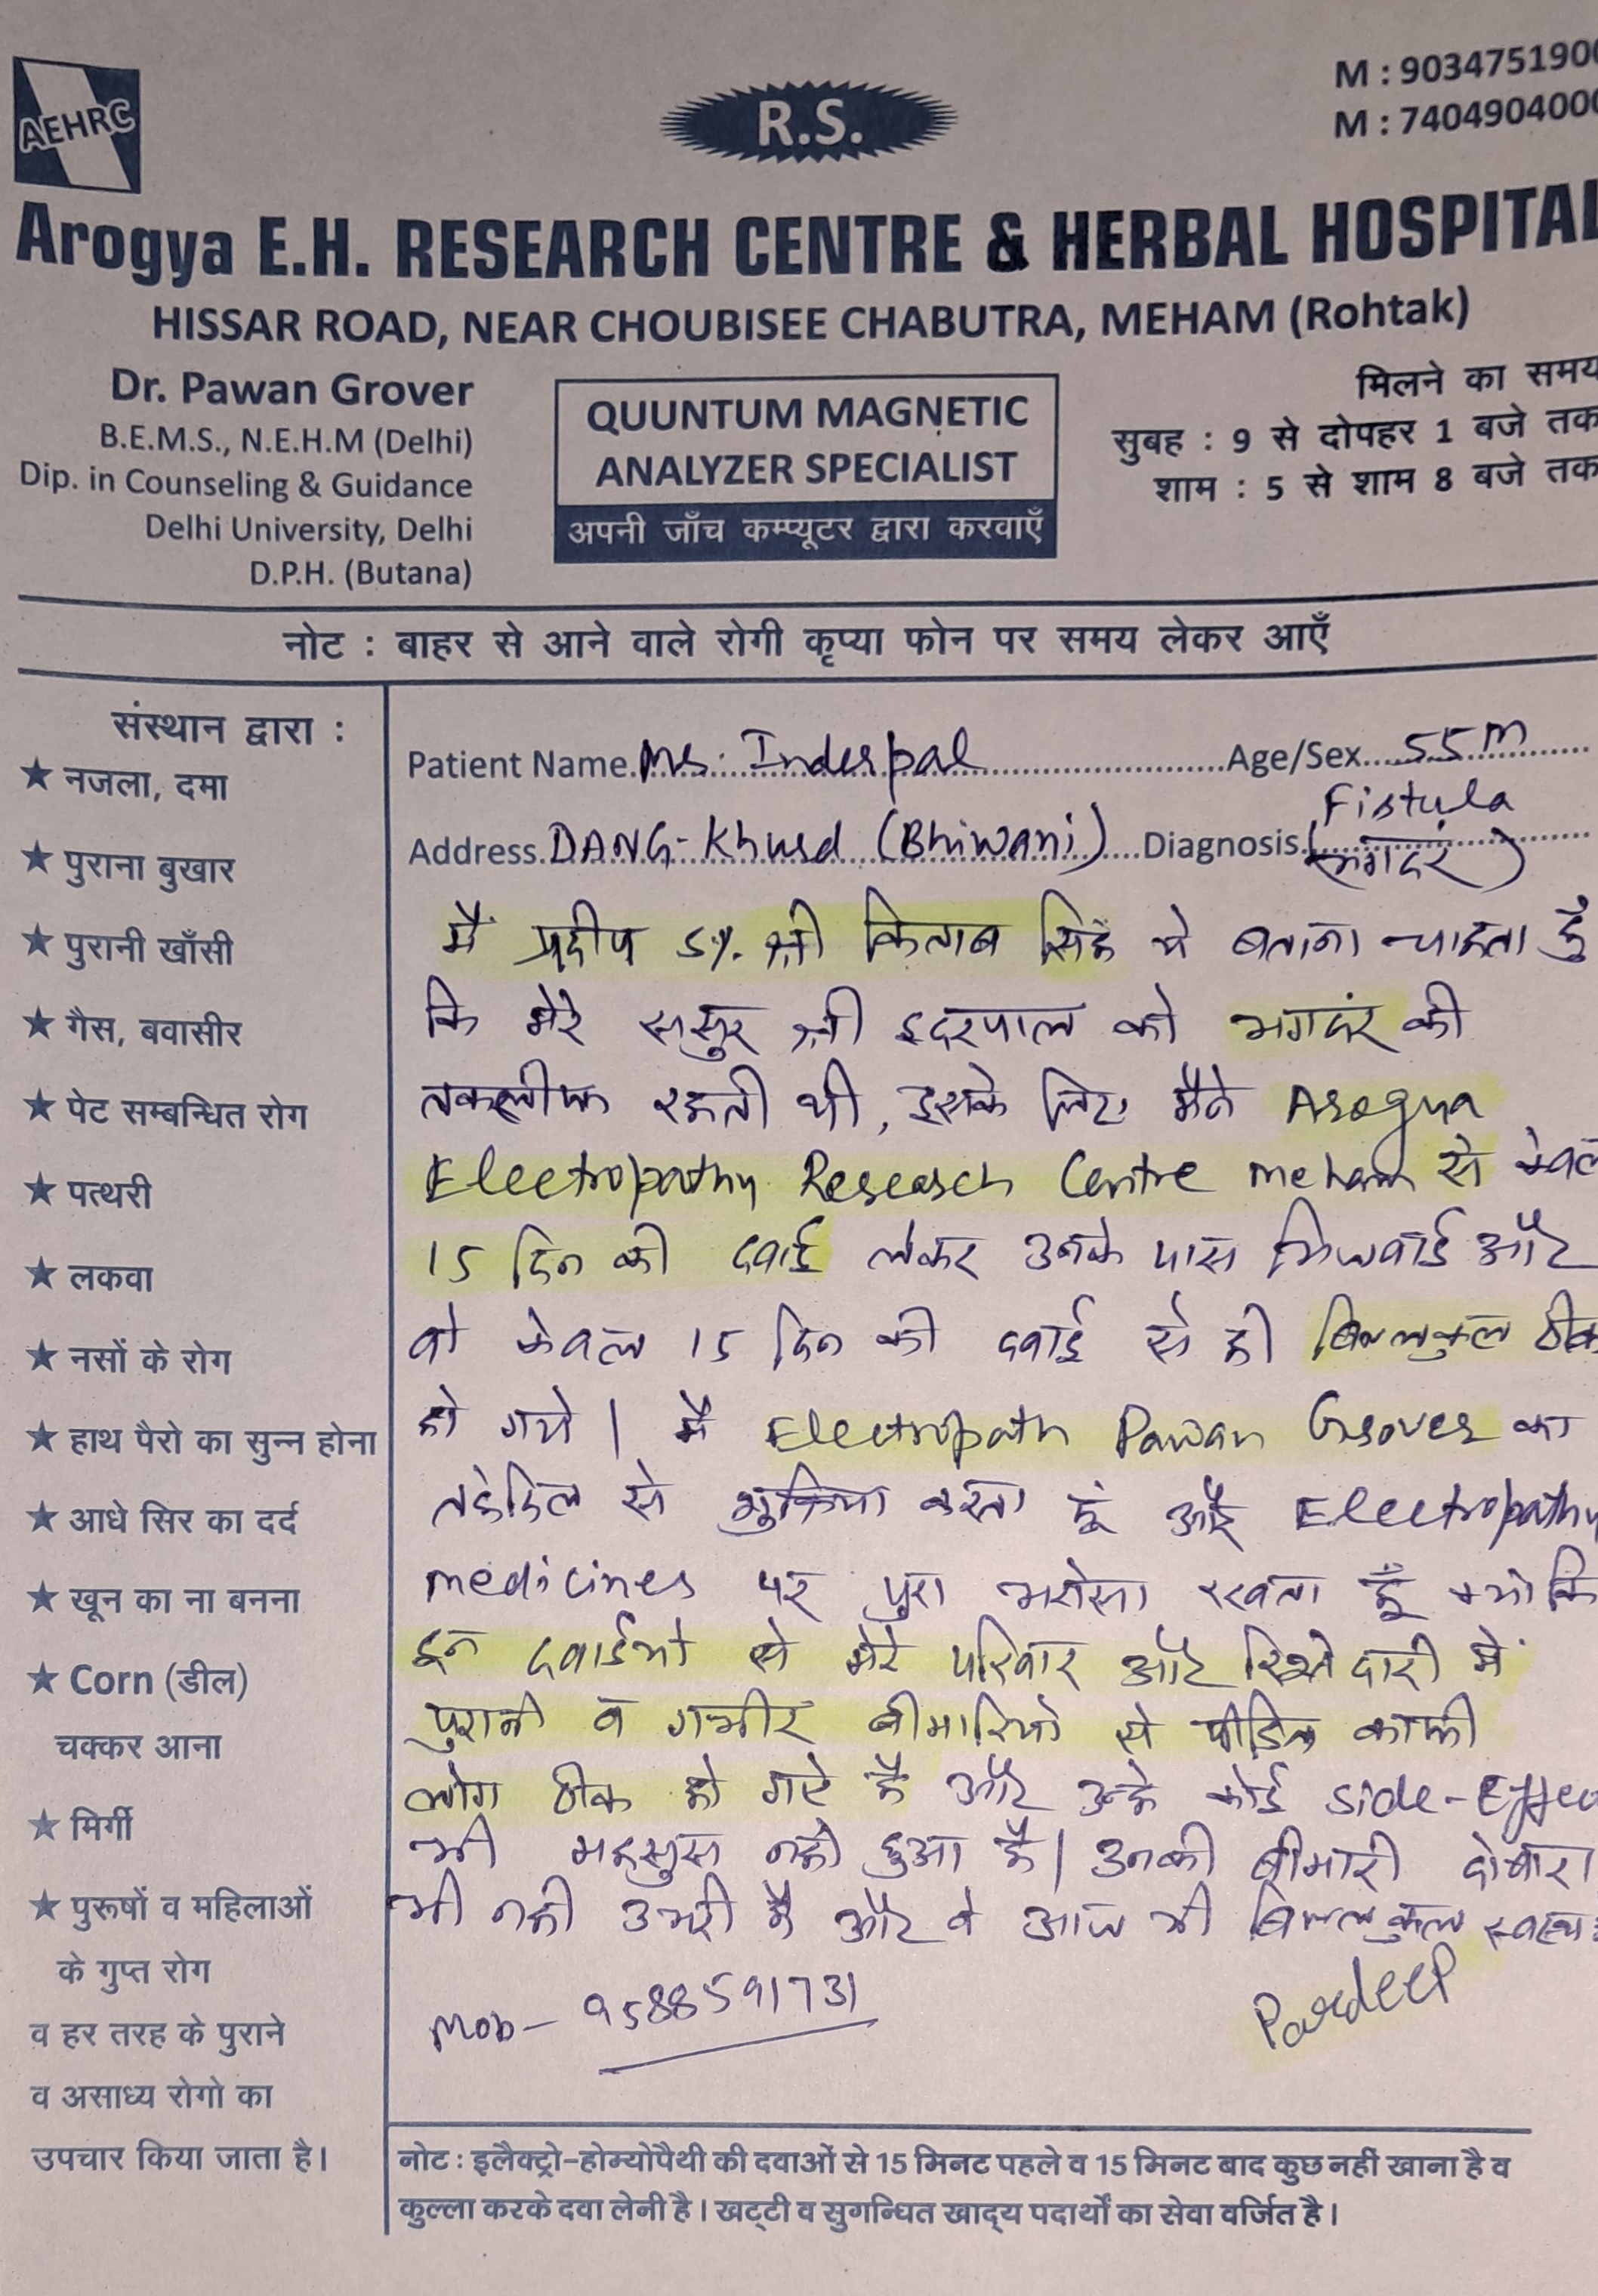 AEHRC
R.S.
M : 903475190
M : 740490400
Arogya E.H. RESEARCH CENTRE & HERBAL HOSPITAL
HISSAR ROAD, NEAR CHOUBISEE CHABUTRA, MEHAM (Rohtak)
Dr. Pawan Grover
B.E.M.S., N.E.H.M (Delhi)
Dip. in Counseling & Guidance
Delhi University, Delhi
D.P.H. (Butana)
QUUNTUM MAGNETIC
ANALYZER SPECIALIST
अपनी जाँच कम्प्यूटर द्वारा करवाएँ
मिलने का समय
सुबह : 9 से दोपहर 1 बजे तक
शाम : 5 से शाम 8 बजे तक
नोट : बाहर से आने वाले रोगी कृप्या फोन पर समय लेकर आएँ
संस्थान द्वारा :
★ नजला, दमा
★ पुराना बुखार
★ पुरानी खाँसी
★ गैस, बवासीर
★ पेट सम्बन्धित रोग
★ पत्थरी
★ लकवा
★ नसों के रोग
★ हाथ पैरो का सुन्न होना
★ आधे सिर का दर्द
★ खून का ना बनना
★ Corn (डील)
चक्कर आना
★ मिर्गी
★ पुरूषों व महिलाओं
के गुप्त रोग
व हर तरह के पुराने
व असाध्य रोगो का
उपचार किया जाता है।
Patient Name Mr. Inderpal Age/Sex 55 m
Address DANG-Khurd (Bhiwani) Diagnosis Fistula
(भगदंर)
मैं प्रदीप S/. श्री किताब सिंह ये बताना चाहता हूँ
कि मेरे ससुर श्री इदरपाल को भगदंर की
तकलीफ रहती थी, इसके लिए मैने Arogya
Electropathy Research Centre meham से केवल
15 दिन की दवाई लेकर उनके पास भिजवाई और
वो केवल 15 दिन की दवाई से ही बिल्कुल ठीक
हो गये। मै Electropath Pawan Grover का
तहेदिल से शुक्रिया करता हूं और Electropathy
medicines पर पुरा भरोसा रखता हूँ क्योकि
इन दवाईयो से मेरे परिवार और रिश्तेदारी में
पुरानी व गम्भीर बीमारियो से पीडित काफी
लोग ठीक हो गऐ है और उन्हे कोई side-Effec
भी महसुस नही हुआ है। उनकी बीमारी दोबारा
भी नही उभरी है और वे आज भी बिल्कुल स्वस्थ
Mob- 9588591731
Pardeep
नोट : इलैक्ट्रो-होम्योपैथी की दवाओं से 15 मिनट पहले व 15 मिनट बाद कुछ नहीं खाना है व
कुल्ला करके दवा लेनी है। खट्टी व सुगन्धित खाद्य पदार्थों का सेवा वर्जित है।